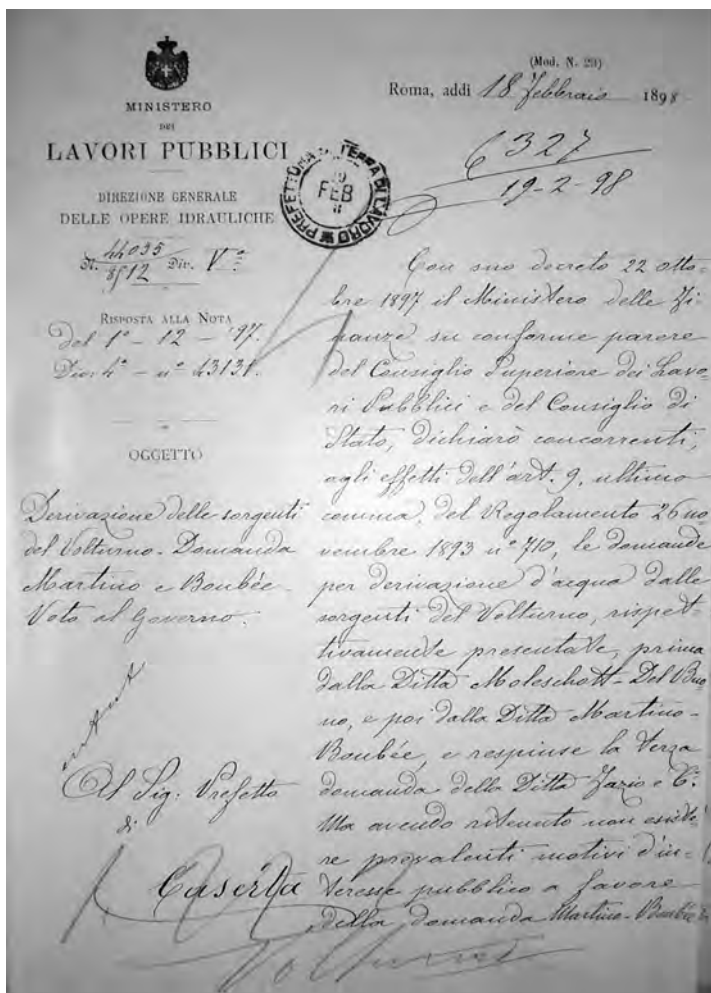 (Mod. N. 29)
Roma, addì 18 Febbraio 1898
MINISTERO
DEI
LAVORI PUBBLICI
DIREZIONE GENERALE
DELLE OPERE IDRAULICHE
N. 44035
8512 Div. Vª
PREFETTURA DI TERRA DI LAVORO
FEB
6327
19-2-98
RISPOSTA ALLA NOTA
del 1º - 12 - '97.
Div. 4ª - nº 43131.
OGGETTO
Derivazione delle sorgenti
del Volturno - Domanda
Martino e Boubée -
Voto al Governo.
Al Sig. Prefetto
di
Caserta
Con suo decreto 22 otto-
bre 1897 il Ministero delle Fi-
nanze su conforme parere
del Consiglio Superiore dei Lavo-
ri Pubblici e del Consiglio di
Stato, dichiarò concorrenti,
agli effetti dell'art. 9, ultimo
comma, del Regolamento 26 no-
vembre 1893 nº 710, le domande
per derivazione d'acqua dalle
sorgenti del Volturno, rispet-
tivamente presentate, prima
dalla Ditta Moleschott-Del Buo-
no, e poi dalla Ditta Martino-
Boubée, e respinse la terza
domanda della Ditta Fazio e Cⁱ.
Ma avendo ritenuto non esiste-
re prevalenti motivi d'in-
teresse pubblico a favore
della domanda Martino-Boubée
Volturno